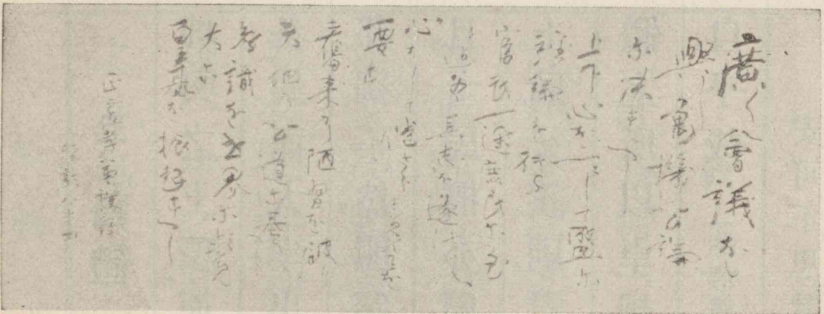 廣ク會議ヲ
興シ萬機公論
ニ決スヘシ
上下心ヲ一ニシテ盛ニ
經綸ヲ行
官武一途庶民ニ至
迄各其志ヲ遂ケ
心ヲシテ倦マサラシ
要ス
舊來ノ陋習ヲ破
天地ノ公道ニ基
智識ヲ世界ニ求メ
大ニ
皇基ヲ振起スヘシ